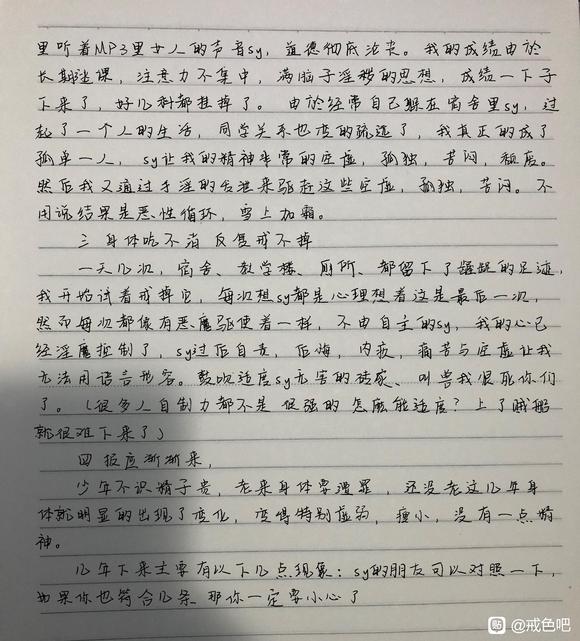 里听着MP3里女人的声音sy，道德彻底沦丧。我的成绩由於
长期逃课，注意力不集中，满脑子淫秽的思想，成绩一下子
下来了，好几科都挂掉了。由於经常自己躲在宿舍里sy，过
起了一个人的生活，同学关系也变的疏远了，我真正的成了
孤单一人，sy让我的精神非常的空虚，孤独，苦闷，颓废。
然后我又通过手淫的方法来驱赶这些空虚，孤独，苦闷。不
用说结果是恶性循环，雪上加霜。
三 身体吃不消 反复戒不掉
一天几次，宿舍、教学楼、厕所、都留下了龌龊的足迹，
我开始试着戒掉它，每次想sy都是心理想着这是最后一次，
然而每次都像有恶魔驱使着一样，不由自主的sy，我的心已
经淫魔控制了，sy过后自责，后悔，内疚，痛苦与空虚让我
无法用语言形容。鼓吹适度sy无害的砖家、叫兽我恨死你们
了。（很多人自制力都不是很强的 怎麽能适度？上了贼船
就很难下来了）
四 报应渐渐来，
少年不识精子贵，老来身体要遭罪，还没老这几年身
体就明显的出现了变化，变得特别虚弱，瘦小，没有一点精
神。
几年下来主要有以下几点现象：sy的朋友可以对照一下，
如果你也符合几条 那你一定要小心了
贴 @戒色吧